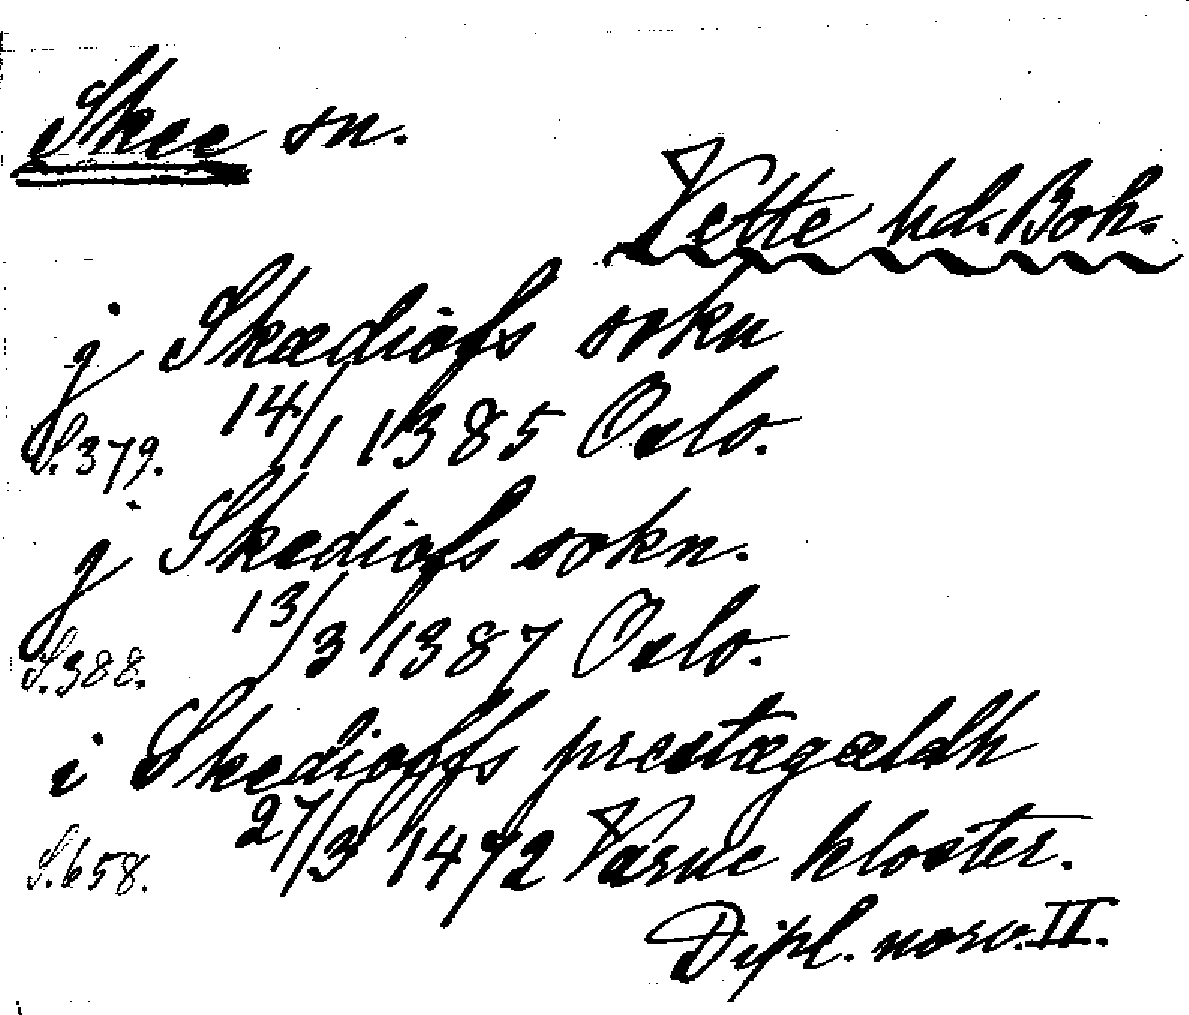 Skee sn.
Vette hd. Boh.
j Skædiofs sokn
S. 379. 14/1 1385 Oslo.
j Skediofs sokn.
S. 388. 13/3 1387 Oslo.
i Skedioffs prestægældh
S. 658. 27/3 1472 Varne kloster.
Dipl. norv. II.